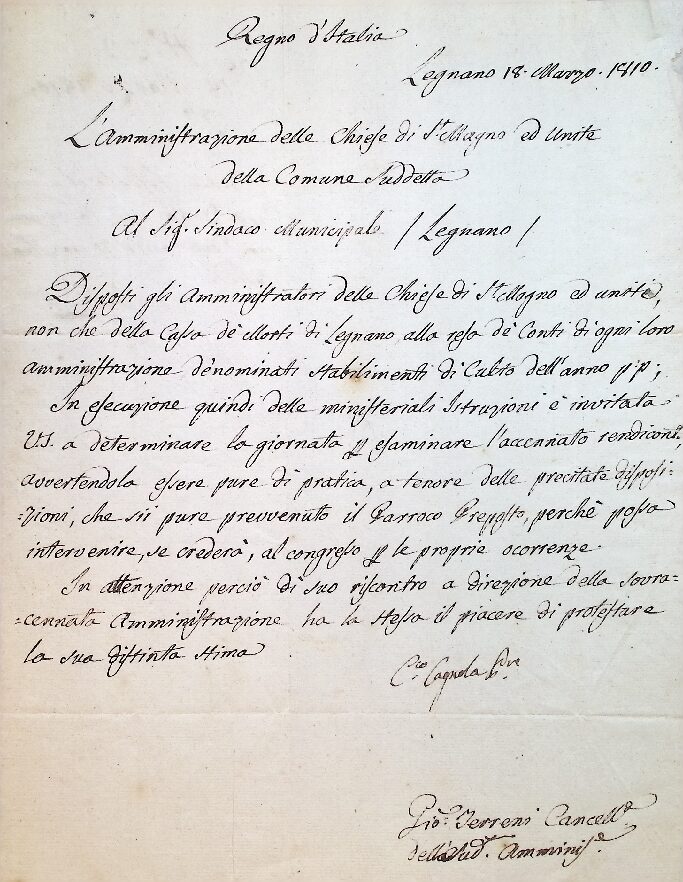 Regno d'Italia
Legnano 18. Marzo. 1810.
L'Amministrazione delle Chiese di S.t Magno ed Unite
della Comune Suddetta
Al Sig.r Sindaco Municipale / Legnano /
Disposti gli Amministratori delle Chiese di S.t Magno ed unite,
non che della Cassa de' Morti di Legnano alla resa de' Conti di ogni loro
amministrazione de' nominati stabilimenti di Culto dell'anno p.° p.°;
In esecuzione quindi delle ministeriali Istruzioni è invitata
V.S. a determinare la giornata per esaminare l'accennato rendiconto,
avvertendola essere pure di pratica, a tenore delle precitate disposi-
=zioni, che sii pure prevvenuto il Parroco Preposto, perchè possa
intervenire, se crederà, al congresso per le proprie ocorrenze.
In attenzione perciò di suo riscontro a direzione della sovra-
=cennata Amministrazione ha la stessa il piacere di protestare
la sua distinta stima
Cagnola
Gio. Terreni Cancell.e
della Sud.a Amminis.e